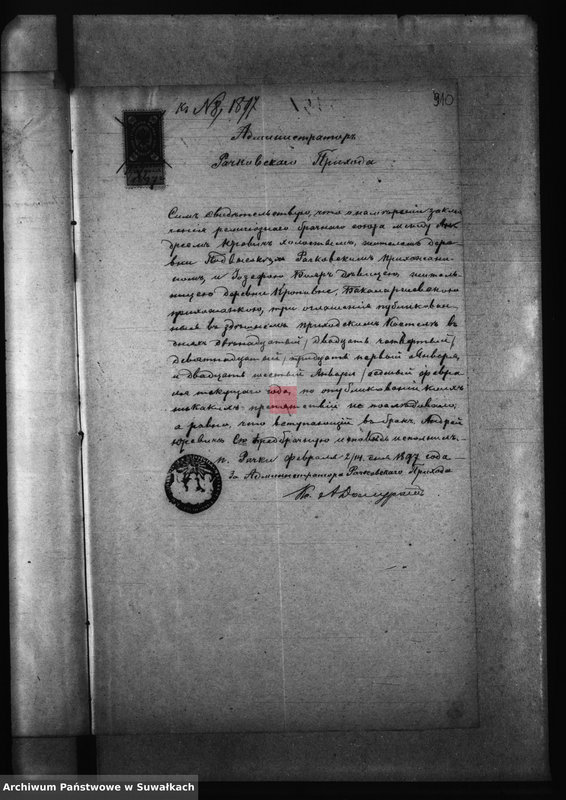 къ № 8, 1897
310
Администраторъ
Рачковскаго Прихода
Симъ свидѣтельствую, что о намѣреніи заклю
ченія религіознаго брачнаго союза между Ан
дреемъ Юревичъ холостымъ, жителемъ дерев
вни Рачковскимъ прихожани
номъ, и Іозефою дѣвицею, житель
ницею деревни Кропивне, Бакаларжевскою
прихожанкою, три оглашенія публикован
ныя въ здѣшнемъ приходскомъ Костелѣ въ
дняхъ двѣнадцатый/двадцать четвертый/
девятнадцатый/тридцать первый Января,
и двадцать шестый Января/седьмый Февра
ля текущаго года, по опубликованіи коихъ
никакихъ препятствій не послѣдовало,
а равно, что вступающій въ бракъ Андрей
Юревичъ предбрачную исповѣдь исполнилъ.
п. Рачки Февраля 2/14 дня 1897 года
За Администратора Рачковскаго Прихода
Кс. А
Archiwum Państwowe w Suwałkach